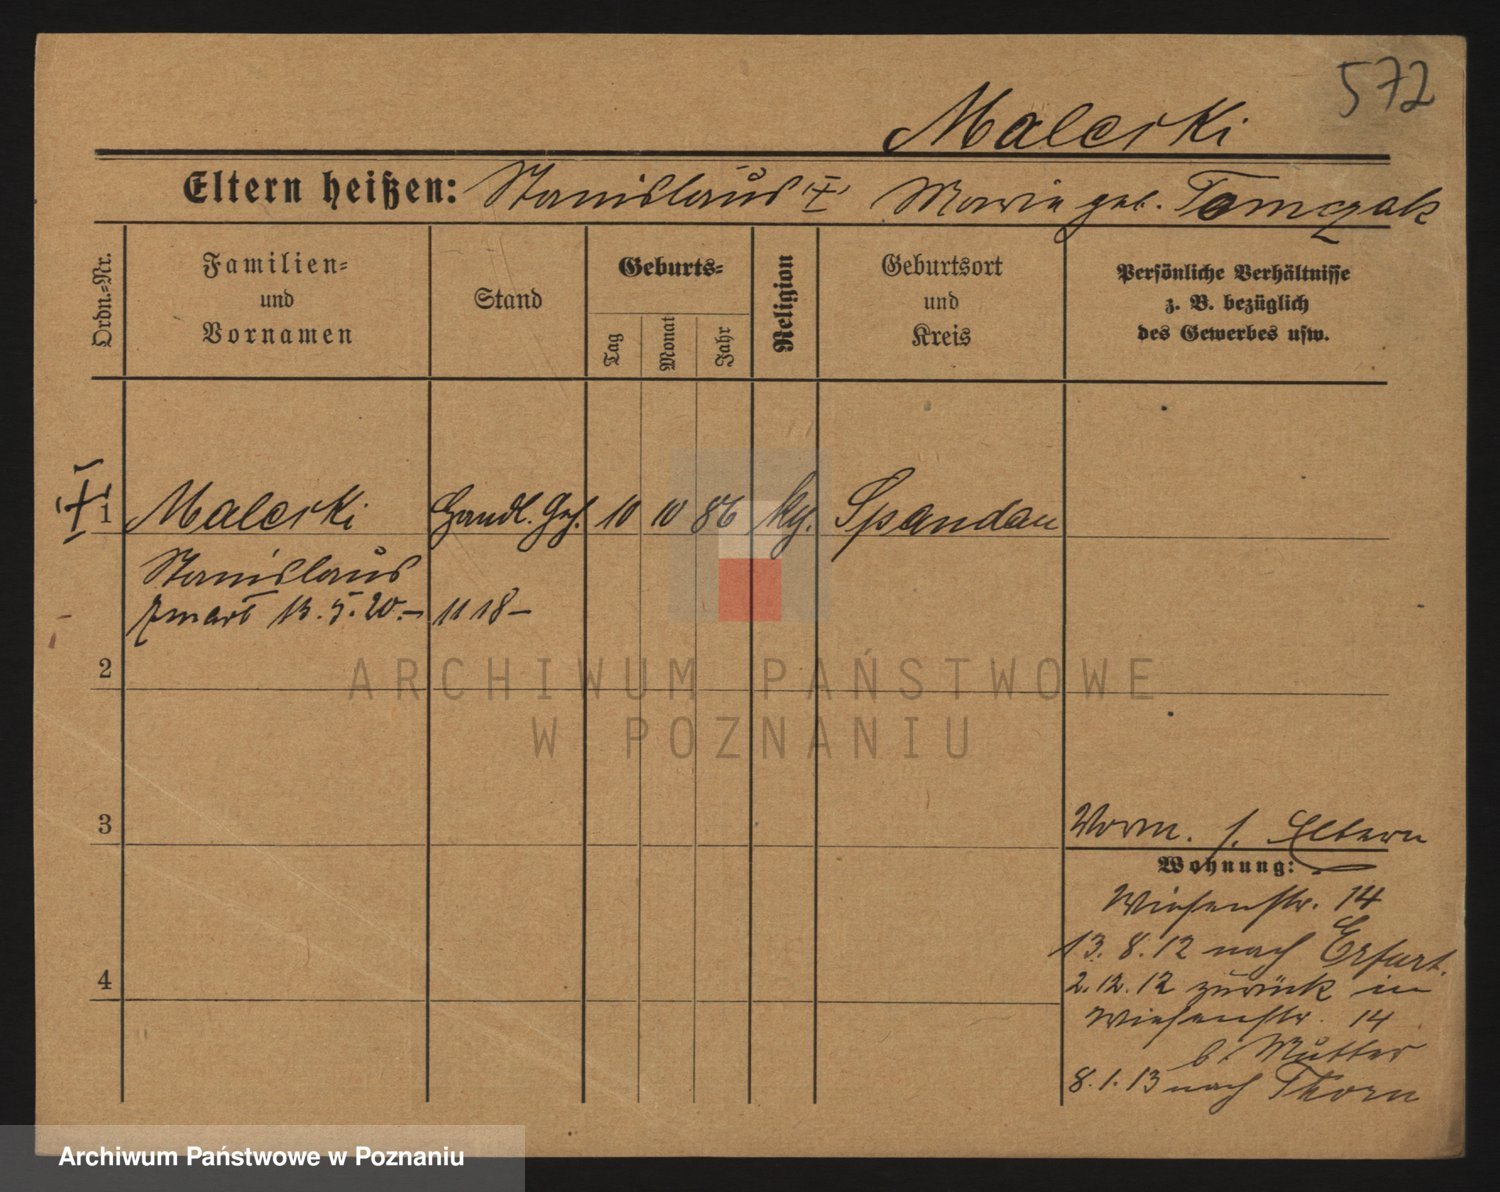 572
Malcrki
Eltern heißen: Stanislaus (†) Marie geb. Tomczak
Ordn.=Nr.
Familien=
und
Vornamen
Stand
Geburts=
Tag
Monat
Jahr
Religion
Geburtsort
und
Kreis
Persönliche Verhältnisse
z. B. bezüglich
des Gewerbes usw.
† 1 Malcrki Handl. Geh. 10 10 86 kg. Spandau
Stanislaus
zmarł 13.5.20.– 1118–
2
3
4
Vorm. s. Eltern
Wohnung:
Wiesenstr. 14
13.8.12 nach Erfurt.
2.12.12 zurück in
Wiesenstr. 14
b. Mutter
8.1.13 nach Thorn
ARCHIWUM PAŃSTWOWE
W POZNANIU
Archiwum Państwowe w Poznaniu